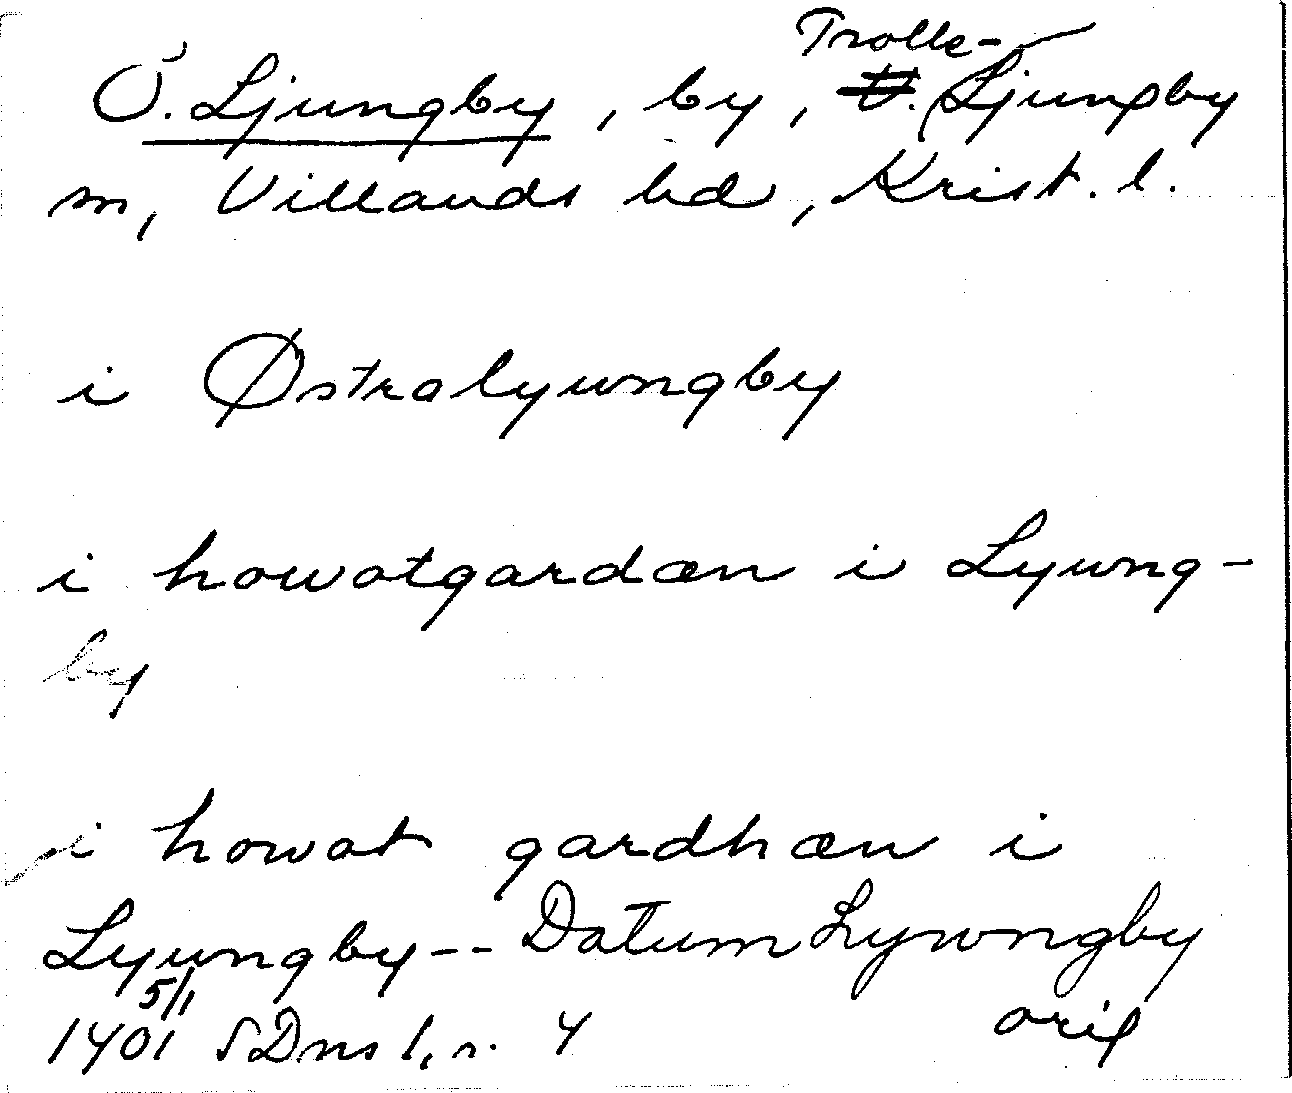 Ö. Ljungby, by, Trolle-Ljungby
sn, Villands hd, Krist. l.
i Østralyungby
i howatgardæn i Lywng-
by
i howat gardhæn i
Lyungby -- Datum Lywngby
5/1
1401 SDns 1, n. 4 orig